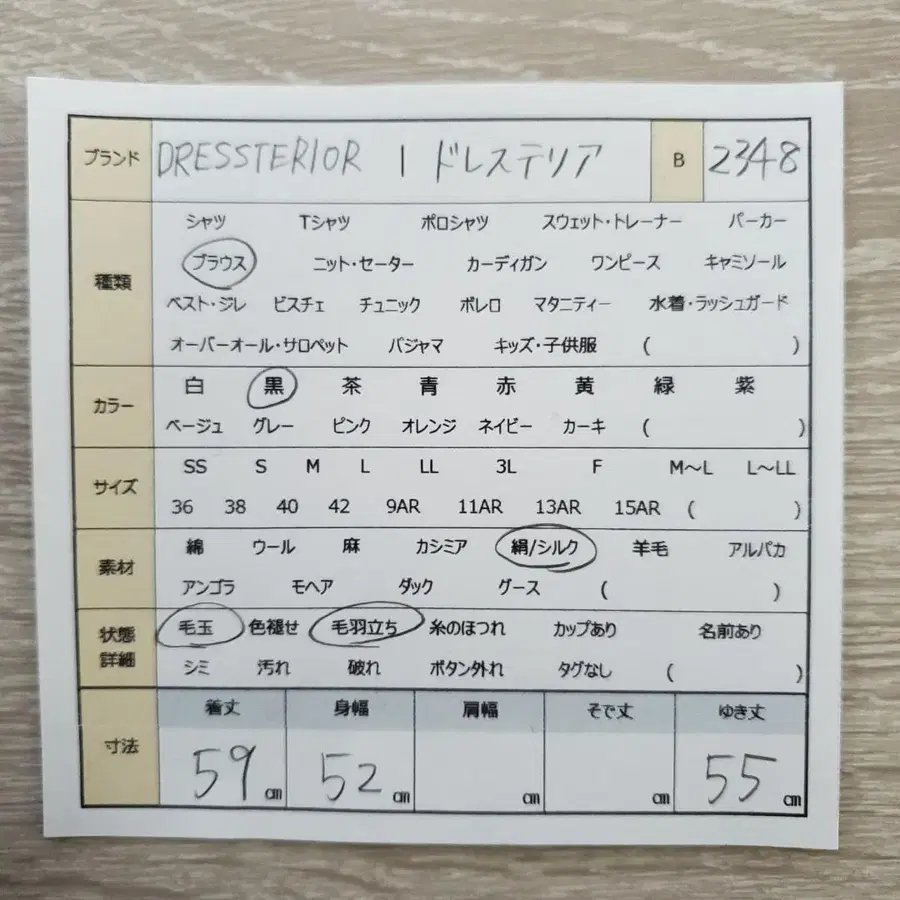 ブランド DRESSTERIOR | ドレステリア B 2348
シャツ Tシャツ ポロシャツ スウェット・トレーナー パーカー
ブラウス ニット・セーター カーディガン ワンピース キャミソール
種類
ベスト・ジレ ビスチェ チュニック ボレロ マタニティー 水着・ラッシュガード
オーバーオール・サロペット パジャマ キッズ・子供服 ( )
白 黒 茶 青 赤 黄 緑 紫
カラー
ベージュ グレー ピンク オレンジ ネイビー カーキ ( )
SS S M L LL 3L F M〜L L〜LL
サイズ
36 38 40 42 9AR 11AR 13AR 15AR ( )
綿 ウール 麻 カシミア 絹/シルク 羊毛 アルパカ
素材
アンゴラ モヘア ダック グース ( )
状態 毛玉 色褪せ 毛羽立ち 糸のほつれ カップあり 名前あり
詳細 シミ 汚れ 破れ ボタン外れ タグなし ( )
着丈 身幅 肩幅 そで丈 ゆき丈
寸法
59 cm 52 cm cm cm 55 cm